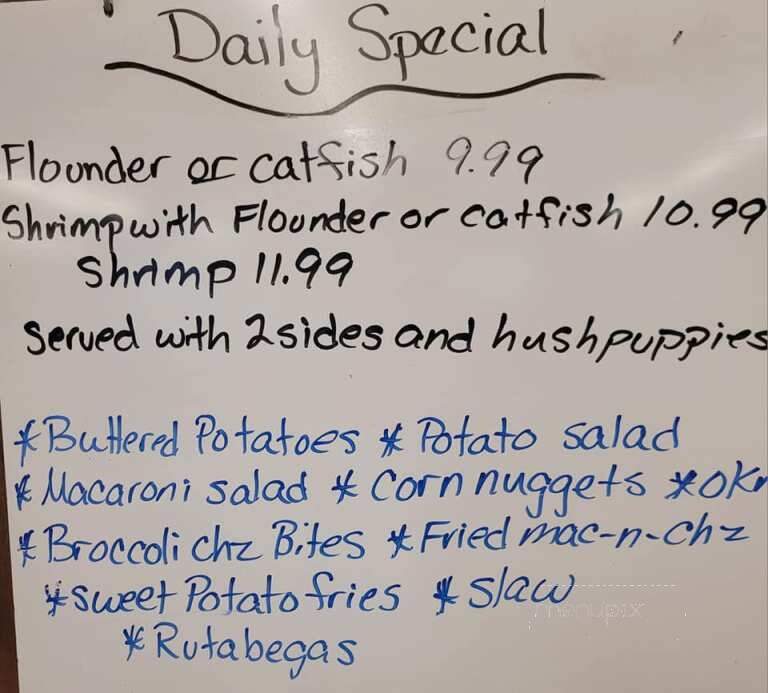 Daily Special
Flounder or catfish 9.99
Shrimp with Flounder or catfish 10.99
Shrimp 11.99
Served with 2 sides and hushpuppies
*Buttered Potatoes * Potato salad
* Macaroni salad * Corn nuggets *
* Broccoli chz Bites * Fried mac-n-chz
* sweet Potato fries * slaw
menupix
* Rutabegas